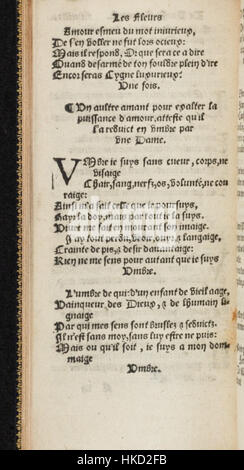 Les Fleurs
Amour esmeu du mot iniurieux,
De s'en voller ne fut lors ocieux:
Mais il respond, Or que sera ce a dire
Quand desarmé de ton fouldre plein d'ire
Encor seras Cygne luxurieux?
Une fois.
Un aultre amant pour exalter la
puissance d'amour, atteste qu'il
l'a reduict en umbre par
une Dame.
UMbre ie suys sans cueur, corps, ne
visaige
Chair, sang, nerfz, os, volunté, ne cou
raige:
Ainsi m'a fait celle que ie poursuys,
ie suys.
Viure me fait en mourant son imaige.
I'ay tout perdu, langaige,
Crainte de pis, & desir dauantaige:
Rien ne me sens pour autant que ie suys
Umbre.
L'umbre de qui: d'un enfant de vieil aage,
Vainqueur des Dieux, & de l'humain li
gnaige
Par qui mes sens sont bruslez & seduictz.
Il n'est sans moy, sans luy estre ne puis:
Mais ou qu'il soit, ie suys a mon dom-
maige
Umbre.
alamy
www.alamy.com - HKD2FB